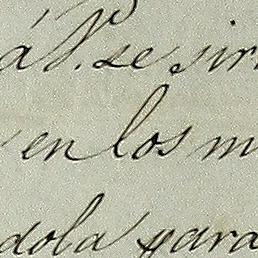 á V. se sir
en los m
dola para